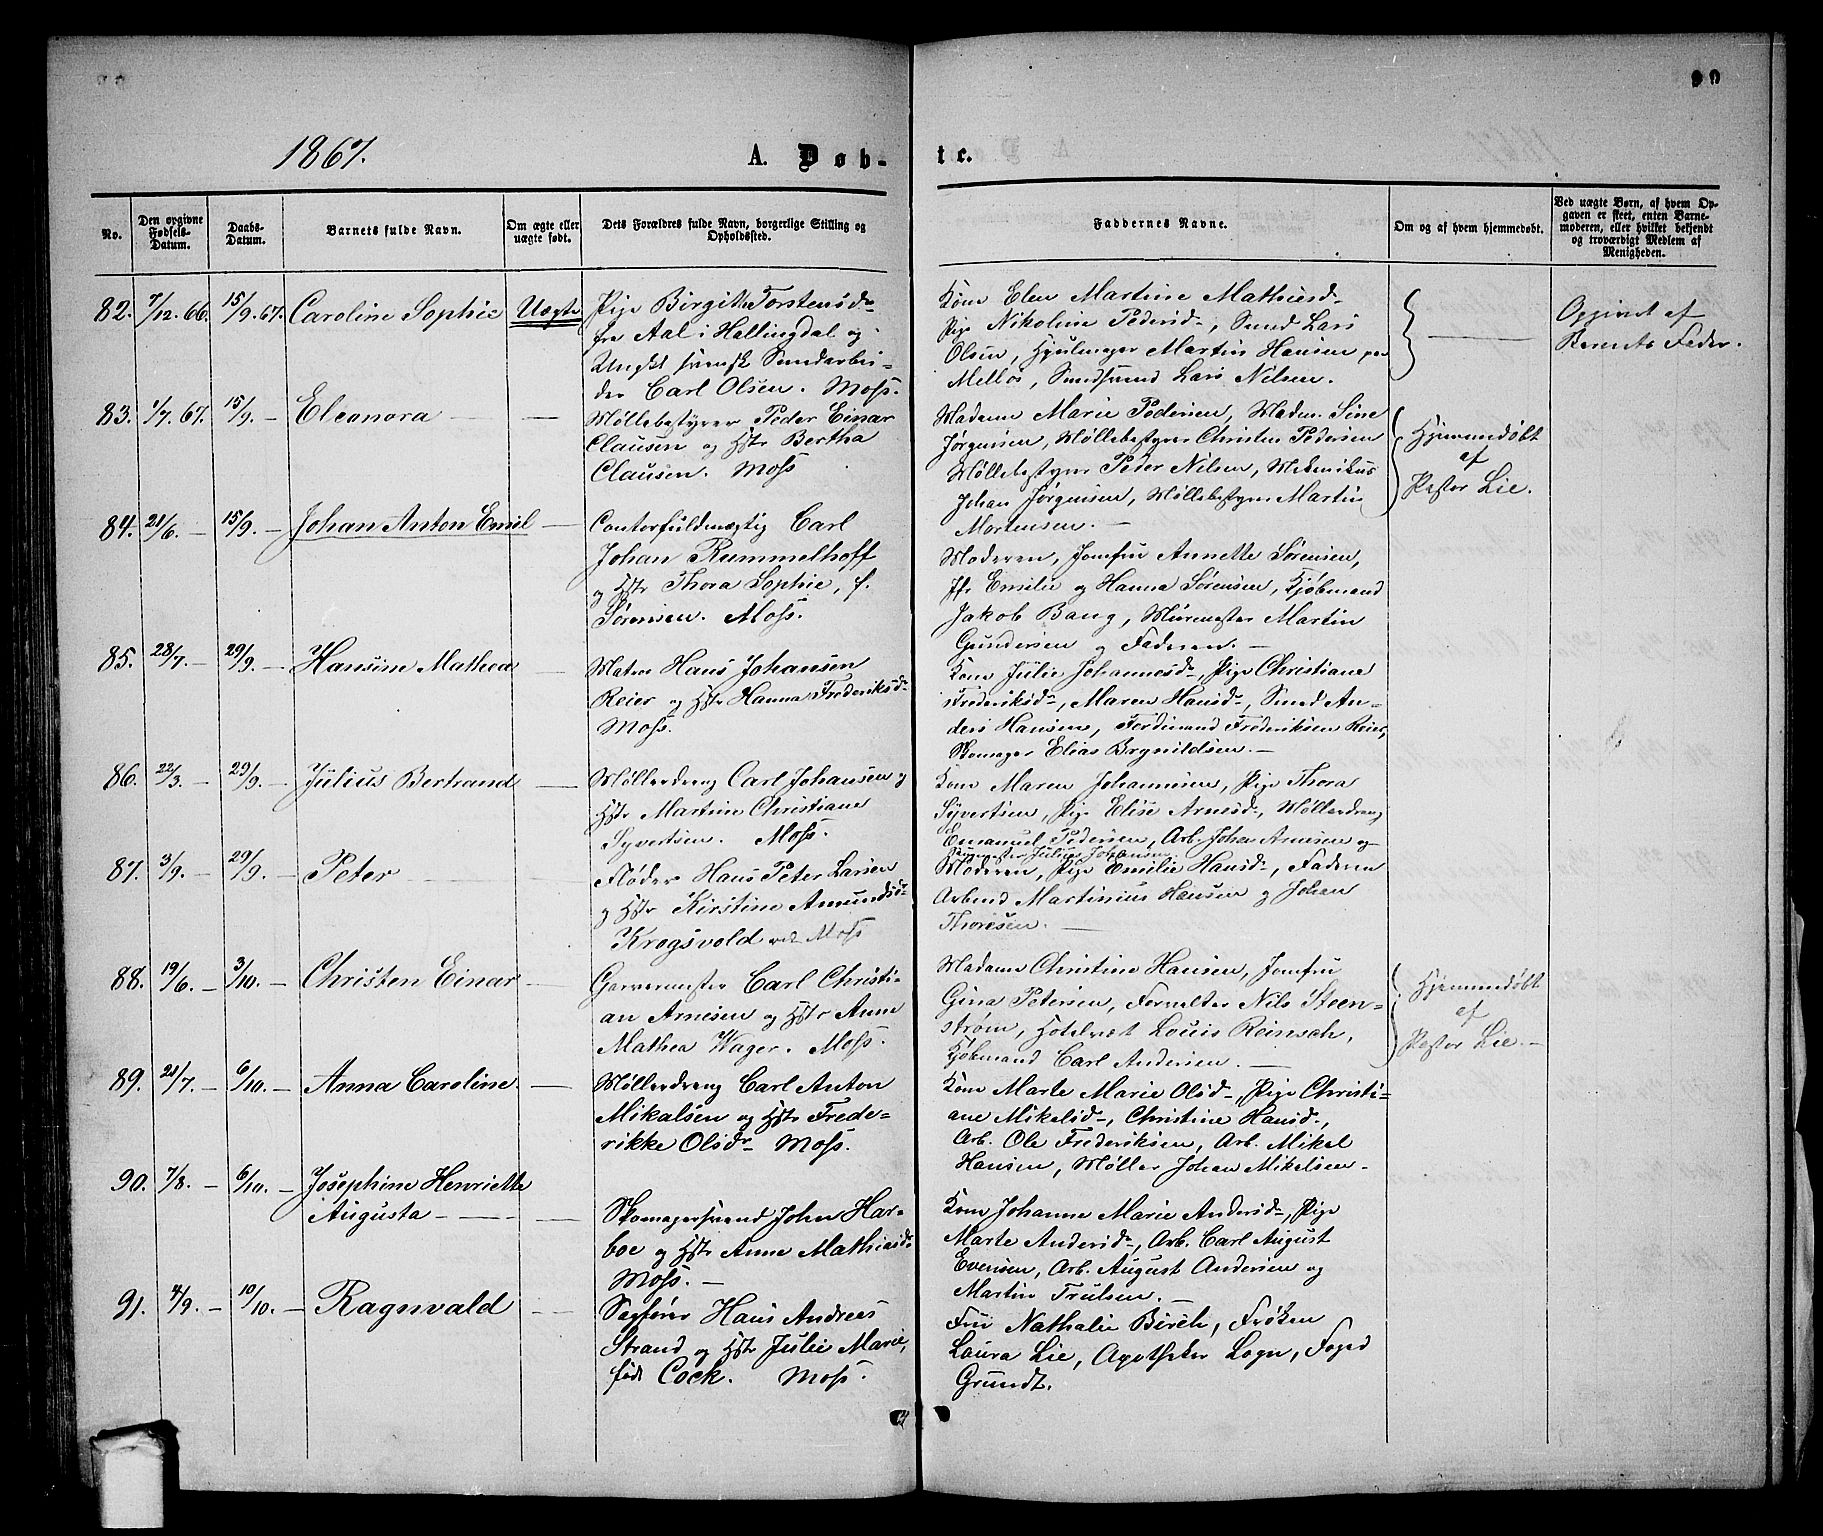 90
1867.
A. Døb-
te.
No.
Den opgivne Fødsels-Datum.
Daabs-Datum.
Barnets fulde Navn.
Om ægte eller uægte født.
Dets Forældres fulde Navn, borgerlige Stilling og Opholdssted.
Faddernes Navne.
Om og af hvem hjemmedøbt.
Ved uægte Børn, af hvem Opgaven er skeet, enten Barnemoderen, eller hvilket bekjendt og troværdigt Medlem af Menigheden.
82. 7/12. 66. 15/9. 67. Caroline Sophie Uægte
Pige Birgitte Torstensd.
fra Aal i Hallingdal og
Ungkl svensk
der Carl Olsen. Moss.
Kone Elen Martine Mathiesd.
Pige Nikoline Pedersd., Smed Lars
Olsen, Hjulmager Martin Hansen
Melløs, Smedsvend Lars Nilsen.
Opgivet af
Barnets Fader.
83. 1/7. 67. 15/9. — Eleonora —
Møllebestyrer Peder Einar
Clausen og Hstr Bertha
Clausen. Moss
Madame Marie Pedersen, Madm. Sine
Jørgensen, Møllebestyrer Christen Pedersen
Møllebestyrer Peder Nilsen, Mekanikus
Johan Jørgensen, Møllebestyrer Martin
Mortensen. —
Hjemmedøbt
af
Pastor Lie.
84. 21/6. — 15/9. — Johan Anton Emil —
Contorfuldmægtig Carl
Johan Rummelhoff
og Hstr Thora Sophie, f.
Sørensen. Moss.
Moderen, Jomfru Annette Sørensen,
Jfr Emilie og Hanna Sørensen, Kjøbmand
Jakob Bang, Murmester Martin
Gundersen og Faderen. —
85. 28/7. — 29/9. — Hansine Mathea —
Matros Hans Johansen
Reier og Hstr Hanna Frederiksd.
Moss.
Kone Julie Johannesd., Pige Christiane
Frederiksd., Maren Hansd., Smed An-
ders Hansen, Ferdinand Frederiksen Reier,
Skomager Elias Brynildsen. —
86. 22/3. — 29/9. — Julius Bertrand —
Møllerdreng Carl Johansen og
Hstr Martine Christiane
Syvertsen. Moss.
Kone Maren Johannesen, Pige Thora
Syvertsen, Pige Elise Arnesd., Møllerdreng
Emanuel Pedersen, Arb. Johan Arnesen og
Julius Johansen
87. 3/9. — 29/9. — Peter —
Fløder Hans Peter Larsen
og Hstr Kirstine Amundsd.
Krogsvold ved Moss
Moderen, Pige Emilie Hansd., Faderen
Arbmd Martinius Hansen og Johan
Thoresen. —
88. 19/6. — 3/10. — Christen Einar —
Garvermester Carl Christi-
an Arnesen og Hstr Anne
Mathea Wager. Moss.
Madame Christine Hansen, Jomfru
Gina Petersen, Forvalter Nils Steen-
strøm, Hotelvært Louis Reinsch,
Kjøbmand Carl Andersen. —
Hjemmedøbt
af
Pastor Lie. —
89. 21/7. — 6/10. — Anna Caroline. —
Møllerdreng Carl Anton
Mikalsen og Hstr Frede-
rikke Olsdr. Moss.
Kone Marte Marie Olsd., Pige Christi-
ane Mikelsd., Christine Hansd.,
Arb. Ole Frederiksen, Arb. Mikel
Hansen, Møller Johan Mikelsen.
90. 7/8. — 6/10. — Josephine Henriette
Augusta — —
Skomagersvend John Har-
boe og Hstr Anne Mathiasd.
Moss. —
Kone Johanne Marie Andersd., Pige
Marte Andersd., Arb. Carl August
Evensen, Arb. August Andersen og
Martin Trulsen. —
91. 4/9. — 10/10. — Ragnvald —
Sagfører Hans Andreas
Strand og Hstr Julie Marie,
født Cock. Moss.
Fru Nathalie Birch, Frøken
Laura Lie, Apotheker Logn, Foged
Grundt.